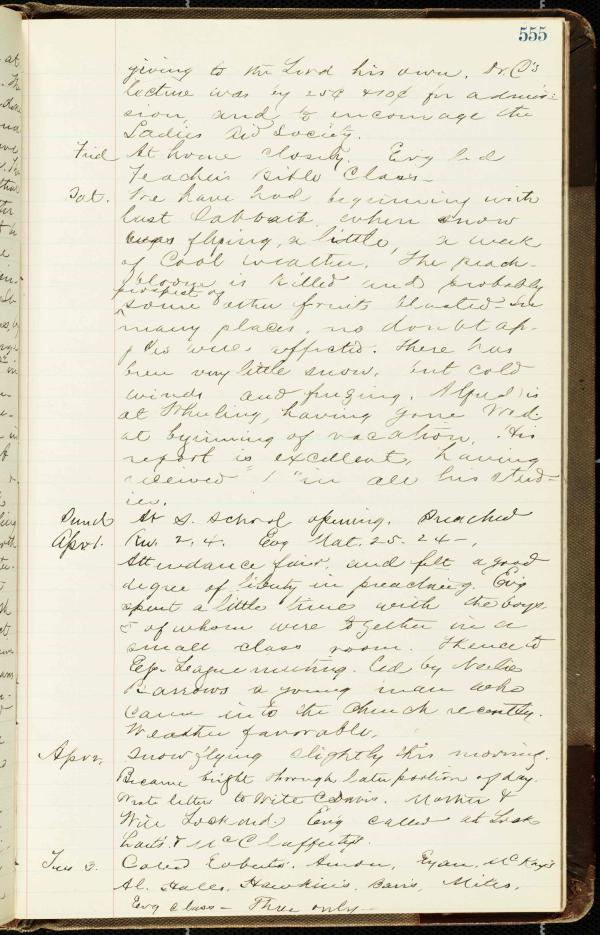 555
giving to the Lord his own. Dr. C's
lecture was by 25¢ & 10¢ for admis-
sion, and to encourage the
Ladies Aid Society.
Frid At home closely. Ev'g led
Teacher's Bible Class—
Sat. We have had beginning with
last Sabbath, when snow
was flying, a little, a week
of cool weather. The peach-
bloom is killed and probably
prospect of
some other fruits blasted— In
many places, no doubt ap-
ples were affected. There has
been very little snow, but cold
winds and freezing. Alfred is
at Wheeling, having gone Wed.
at beginning of vacation. His
report is excellent, having
received "1" in all his stud-
ies.
Sund At S. School opening. Preached
Apr. 1. Rev. 2. 4. Ev'g Mat. 25. 24—,
Attendance fair, and felt a good
degree of liberty in preaching. Ev'g
spent a little time with the boys.
5 of whom were together in a
small class room. Thence to
Ep. League meeting. Led by
Barrows a young man who
came into the church recently.
Weather favorable.
Apr 2. Snow flying slightly this morning.
Became bright through later portion of day.
Wrote letters to Davis. Mother &
Will Lockard. Ev'g called at
& McClafferty's.
Tues 3. Called Roberts. Ryan, McKay's
Al. Halls, Hawkins, Miles.
Ev'g class— Three only—